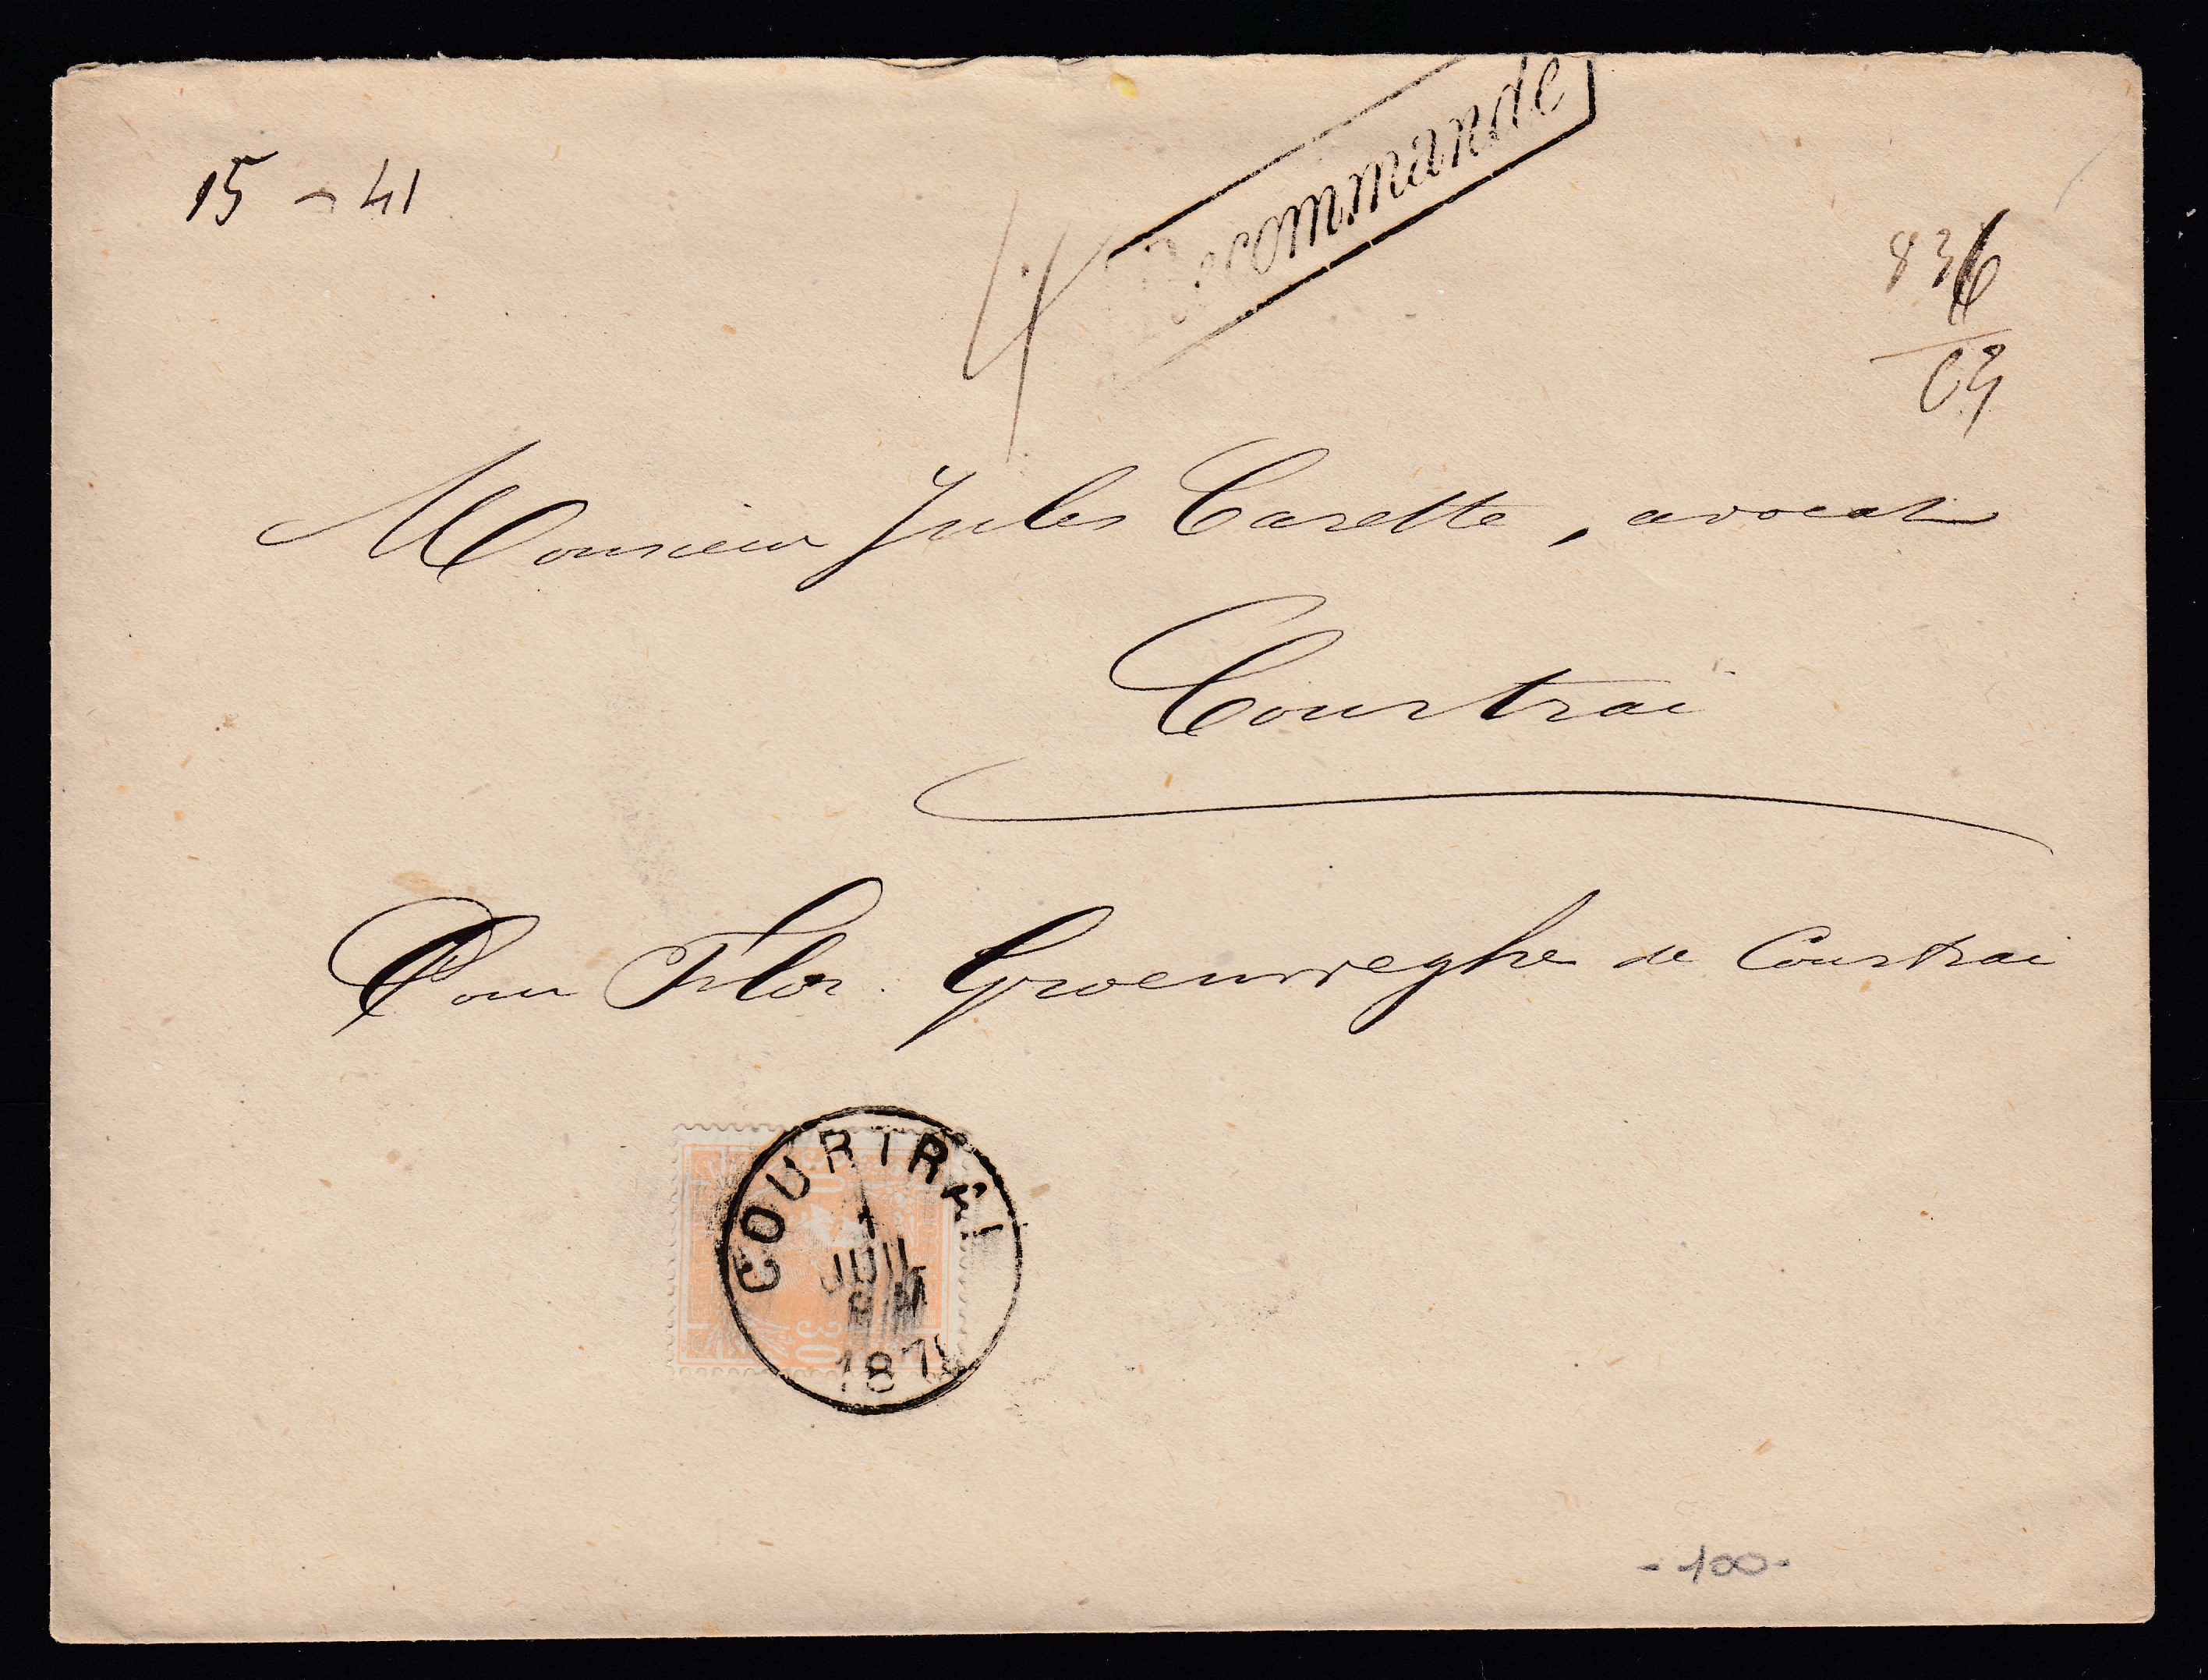 Recommandé
15 - 41
4
836
09
Monsieur Jules Carette, avocat
Courtrai
Pour Flor. Groenweghe de Courtrai
COURTRAI
1
JUIL
8 M
187
30
- 100 -